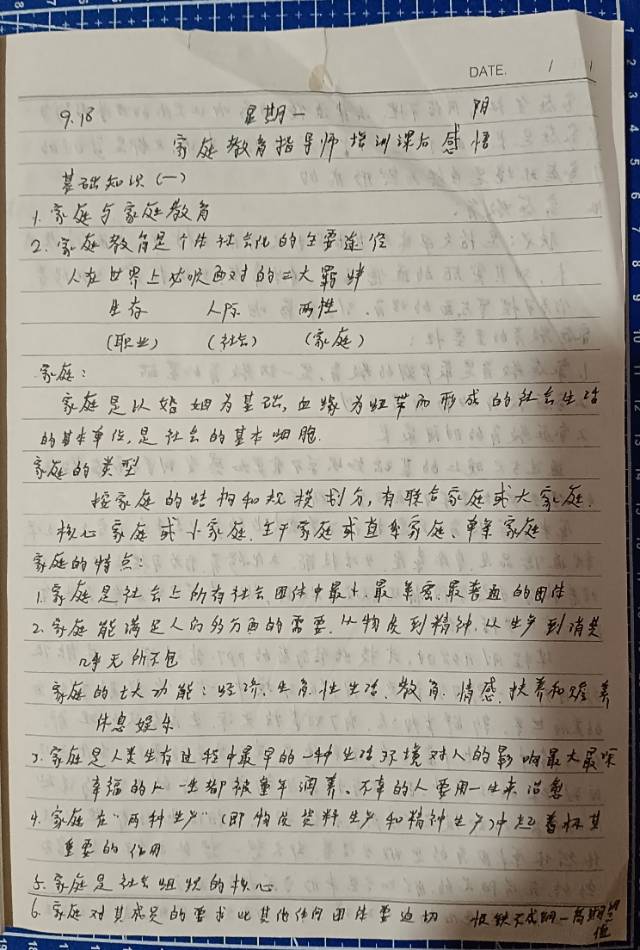 DATE. / /
9.18 星期一 阴
家庭教育指导师培训课后感悟
基础知识(一)
1.家庭与家庭教育
2.家庭教育是个体社会化的主要途径
人在世界上必须面对的三大羁绊
生存 人际 两性
(职业) (社会) (家庭)
家庭:
家庭是以婚姻为基础,血缘为纽带而形成的社会生活
的基本单位,是社会的基本细胞.
家庭的类型
按家庭的结构和规模划分,有联合家庭或大家庭.
核心家庭或小家庭.主干家庭或直系家庭、单亲家庭
家庭的特点:
1.家庭是社会上所有社会团体中最小、最亲密、最普通的团体
2.家庭能满足人的多方面的需要.从物质到精神.从生产到消费
几乎无所不包
家庭的七大功能:经济.生育.性生活.教育.情感.扶养和赡养
休息娱乐
3.家庭是人类生存过程中最早的一种生活环境对人的影响最大最深
幸福的人一生都被童年润养、不幸的人要用一生来治愈
4.家庭在"两种生产"(即物质资料生产和精神生产)中起着极其
重要的作用
5.家庭是社会组织的核心
6.家庭对其成员的要求比其他任何团体要迫切 恨铁不成钢—高期望
值